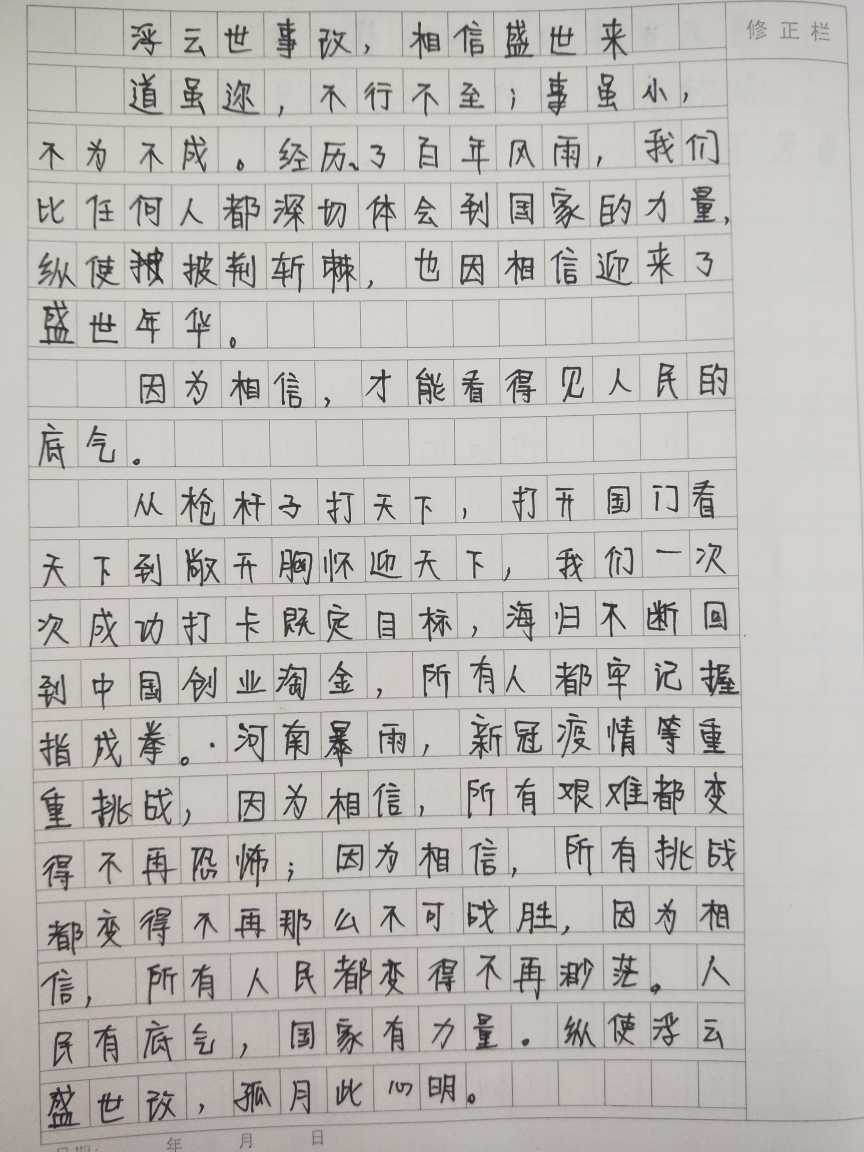 修正栏
浮云世事改，相信盛世来
道虽迩，不行不至；事虽小，
不为不成。经历了百年风雨，我们
比任何人都深切体会到国家的力量，
纵使披荆斩棘，也因相信迎来了
盛世年华。
因为相信，才能看得见人民的
底气。
从枪杆子打天下，打开国门看
天下到敞开胸怀迎天下，我们一次
次成功打卡既定目标，海归不断回
到中国创业淘金，所有人都牢记握
指成拳。·河南暴雨，新冠疫情等重
重挑战，因为相信，所有艰难都变
得不再恐怖；因为相信，所有挑战
都变得不再那么不可战胜，因为相
信，所有人民都变得不再渺茫。人
民有底气，国家有力量。纵使浮云
盛世改，孤月此心明。
年 月 日